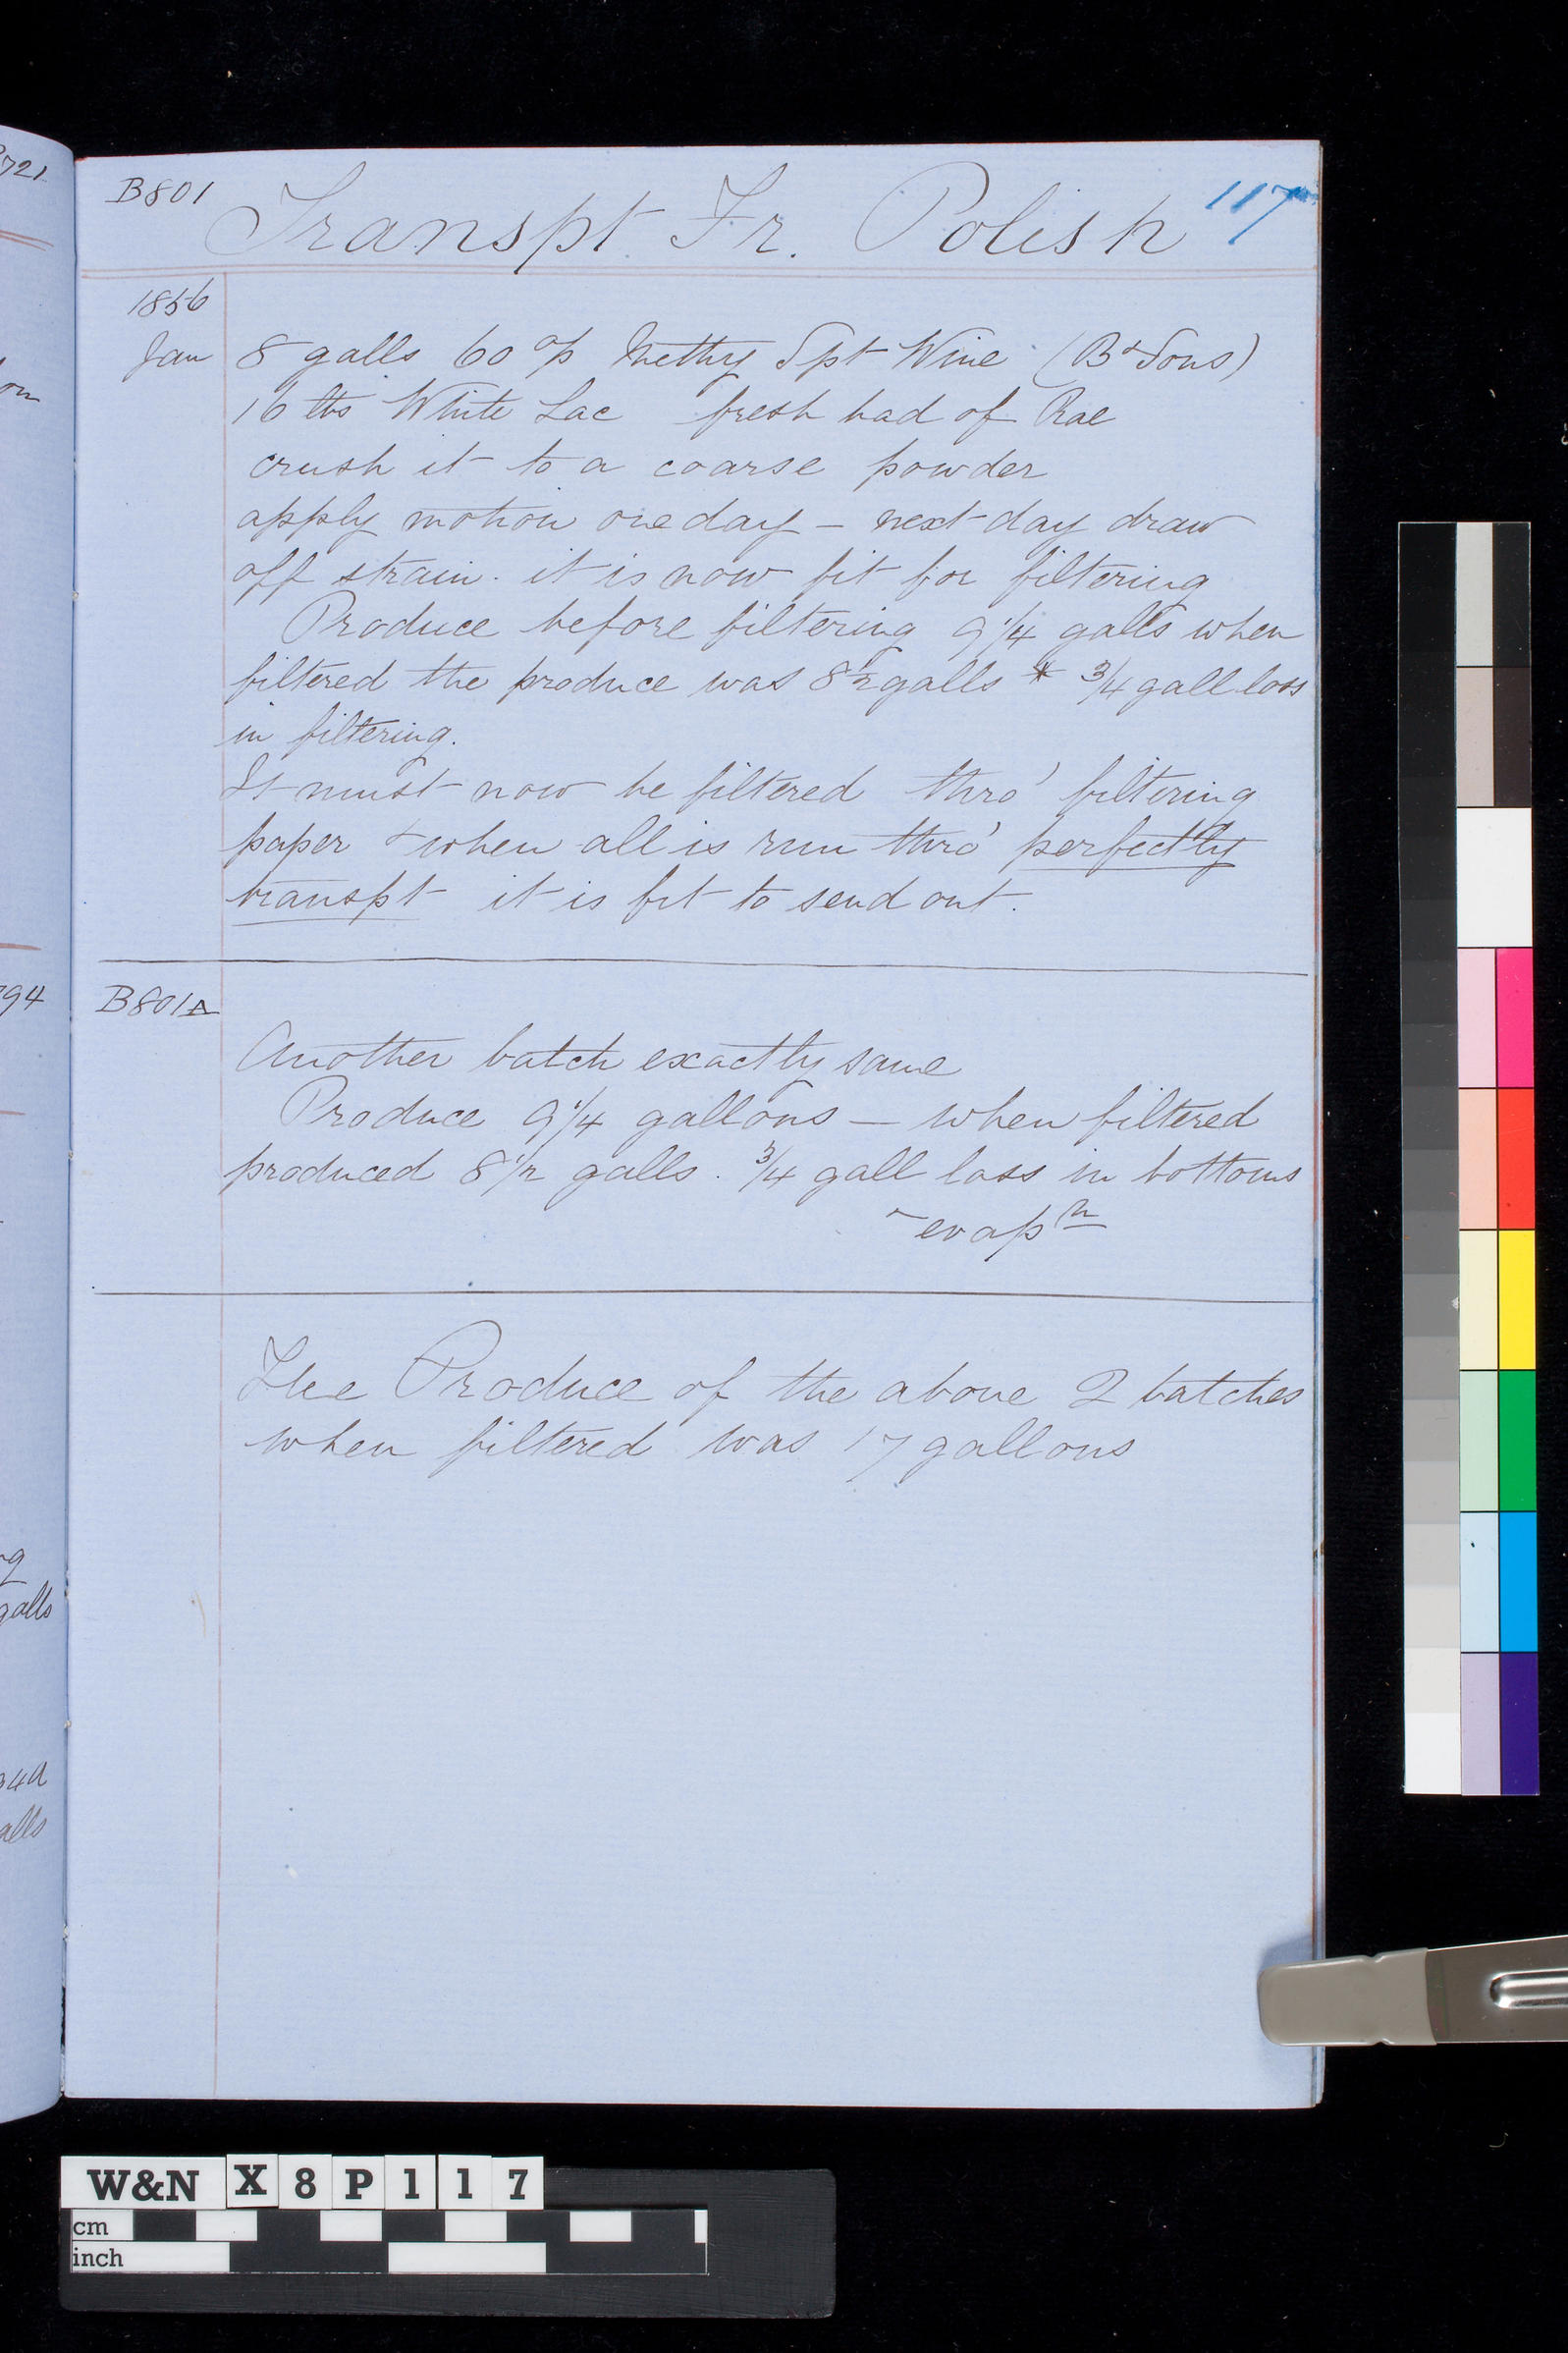 721
B801 Transpt. Fr. Polish 117
1856
Jan 8 galls 60 o/p Methy Spt Wine (B & Sons)
16 lbs White Lac fresh had of Rae
crush it to a coarse powder
apply motion one day – next day draw
off strain. it is now fit for filtering
Produce before filtering 9 1/4 galls when
filtered the produce was 8 1/2 galls * 3/4 gall loss
in filtering.
It must now be filtered thro' filtering
paper & when all is run thro' perfectly
transpt it is fit to send out.
94
B801A
Another batch exactly same
Produce 9 1/4 gallons — when filtered
produced 8 1/2 galls. 3/4 gall loss in bottoms
& evapn
The Produce of the above 2 batches
when filtered was 17 gallons
galls
4A
alls
W&N X8P117
cm
inch